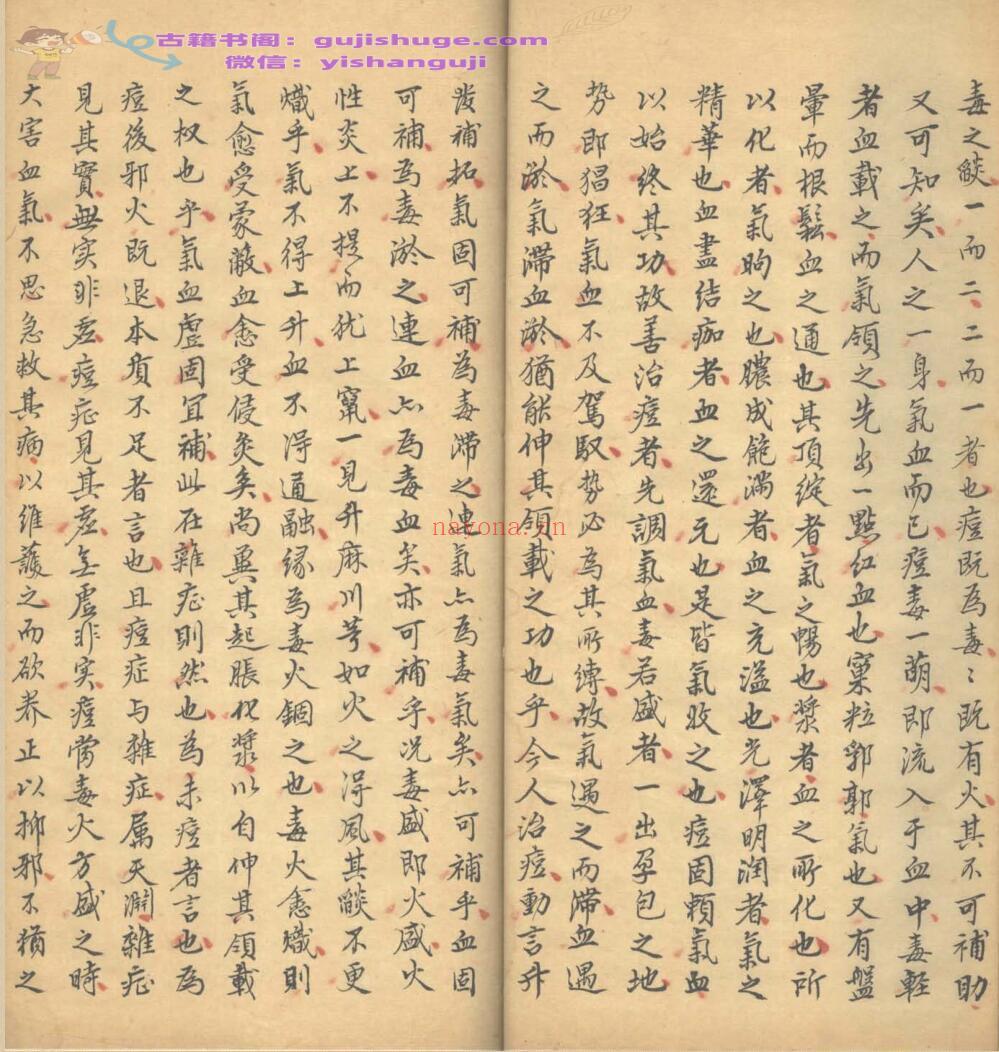 古籍书阁：gujishuge.com
微信：yishanguji
毒之燄一而二二而一者也痘既為毒〻既有火其不可補助
又可知矣人之一身氣血而已痘毒一萌即流入于血中毒輕
者血載之而氣領之先出一點紅血也窠粒郛郭氣也又有盤
暈而根鬆血之通也其頂綻者氣之暢也漿者血之所化也所
以化者氣昫之也膿成飽滿者血之充溢也光澤明润者氣之
精華也血盡结痂者血之還元也是皆氣收之也痘固賴氣血
以始终其功故善治痘者先調氣血毒若盛者一出孕包之地
势即猖狂氣血不及駕馭势必為其所縛故氣遇之而滯血遇
之而淤氣滯血淤猶能伸其領載之功也乎今人治痘動言升
發補拓氣固可補為毒滯之連氣亦為毒氣矣亦可補乎血固
可補為毒淤之連血亦為毒血矣亦可補乎况毒盛即火盛火
性炎上不提而犹上竄一見升麻川芎如火之浔風其燄不更
熾乎氣不得上升血不浔通融缘為毒火錮之也毒火愈熾則
氣愈受蒙蔽血愈受侵灸矣尚兾其起脹化漿以自伸其領載
之权也乎氣血虛固宜補此在雜症則然也為未痘者言也為
痘後邪火既退本質不足者言也且痘症与雜症属天淵雜症
見其實無实非虗痘症見其虗無虛非实痘當毒火方盛之時
大害血氣不思急救其病以维護之而欲养正以抑邪不猶之
nayona.cn